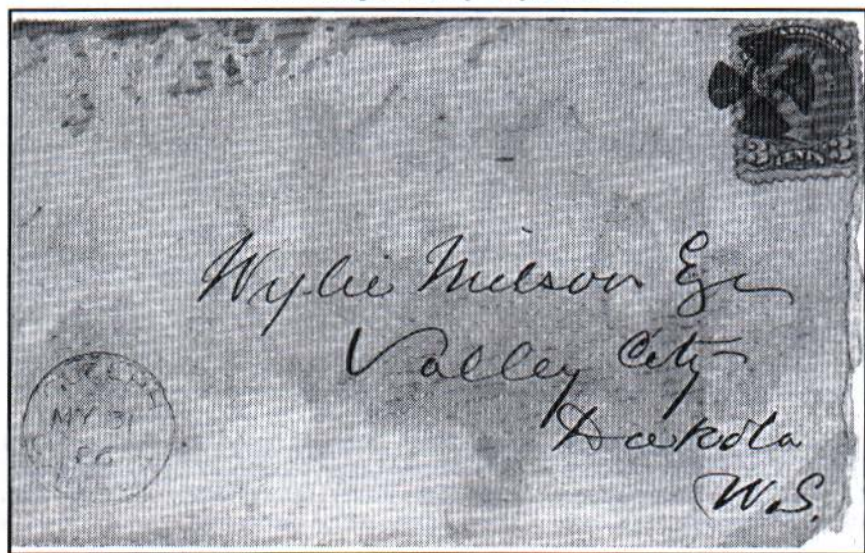 3 CENTS 3
Wylie Nielson Esqr
Valley City
Dakota
U.S.
MY 31